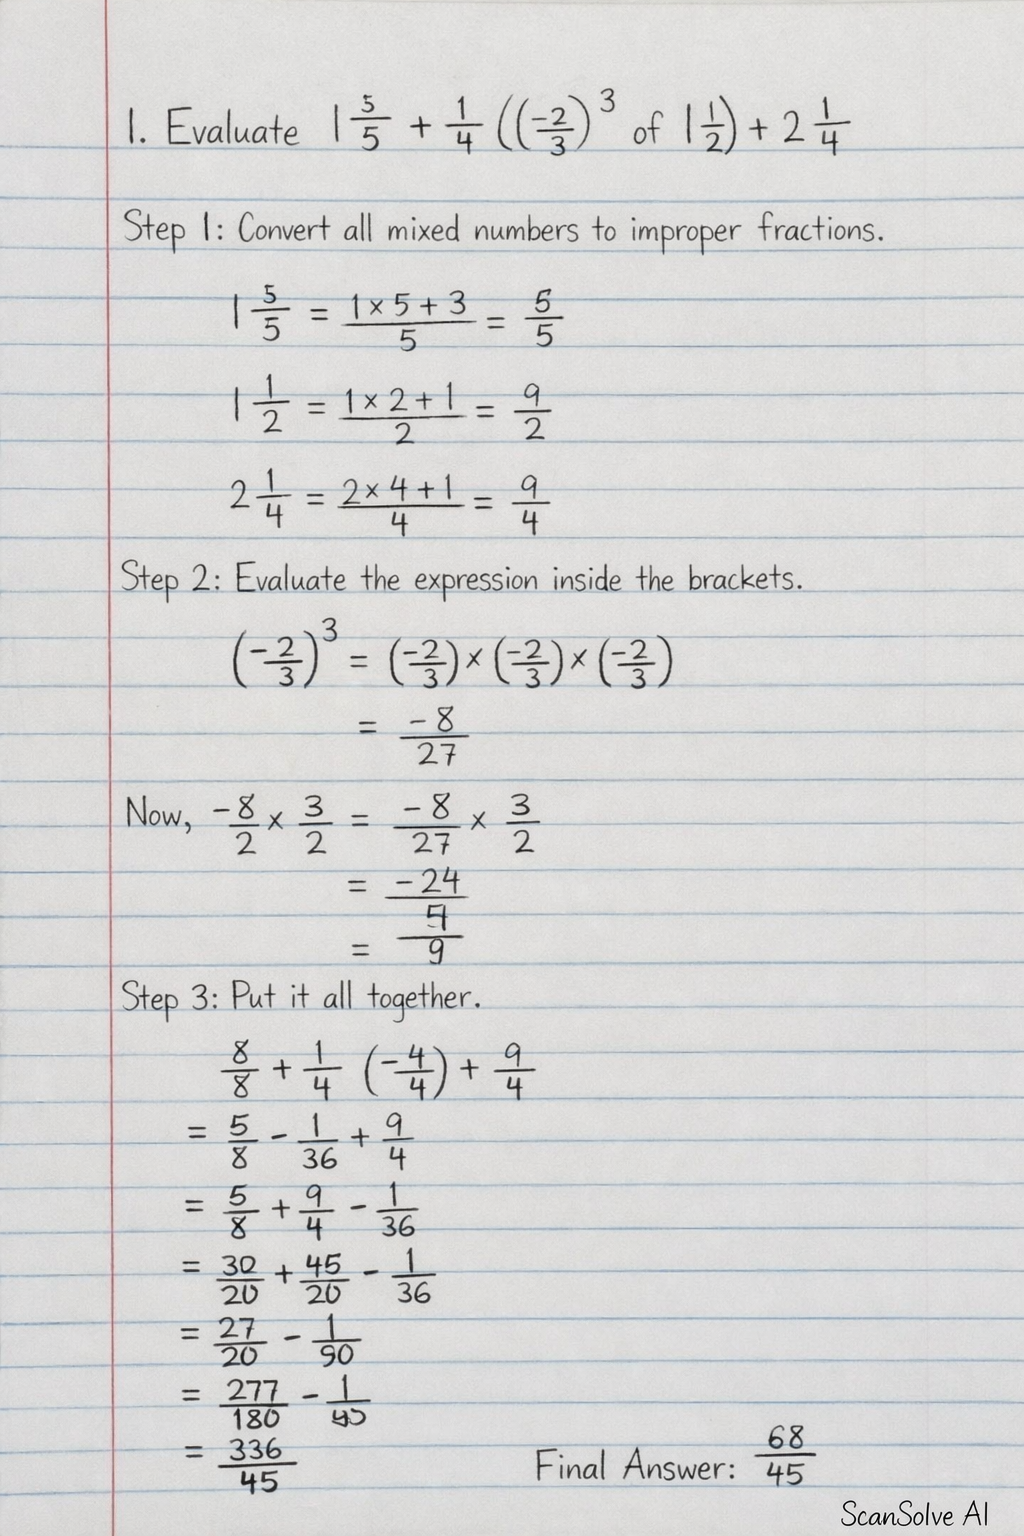 1. Evaluate 1 5/5 + 1/4 ((-2/3)^3 of 1 1/2) + 2 1/4
Step 1: Convert all mixed numbers to improper fractions.
1 5/5 = (1 × 5 + 3)/5 = 5/5
1 1/2 = (1 × 2 + 1)/2 = 9/2
2 1/4 = (2 × 4 + 1)/4 = 9/4
Step 2: Evaluate the expression inside the brackets.
(-2/3)^3 = (-2/3) × (-2/3) × (-2/3)
= -8/27
Now, -8/2 × 3/2 = -8/27 × 3/2
= -24/
= /9
Step 3: Put it all together.
8/8 + 1/4 (-4/4) + 9/4
= 5/8 - 1/36 + 9/4
= 5/8 + 9/4 - 1/36
= 30/20 + 45/20 - 1/36
= 27/20 - 1/90
= 277/180 - 1/
= 336/45
Final Answer: 68/45
ScanSolve AI